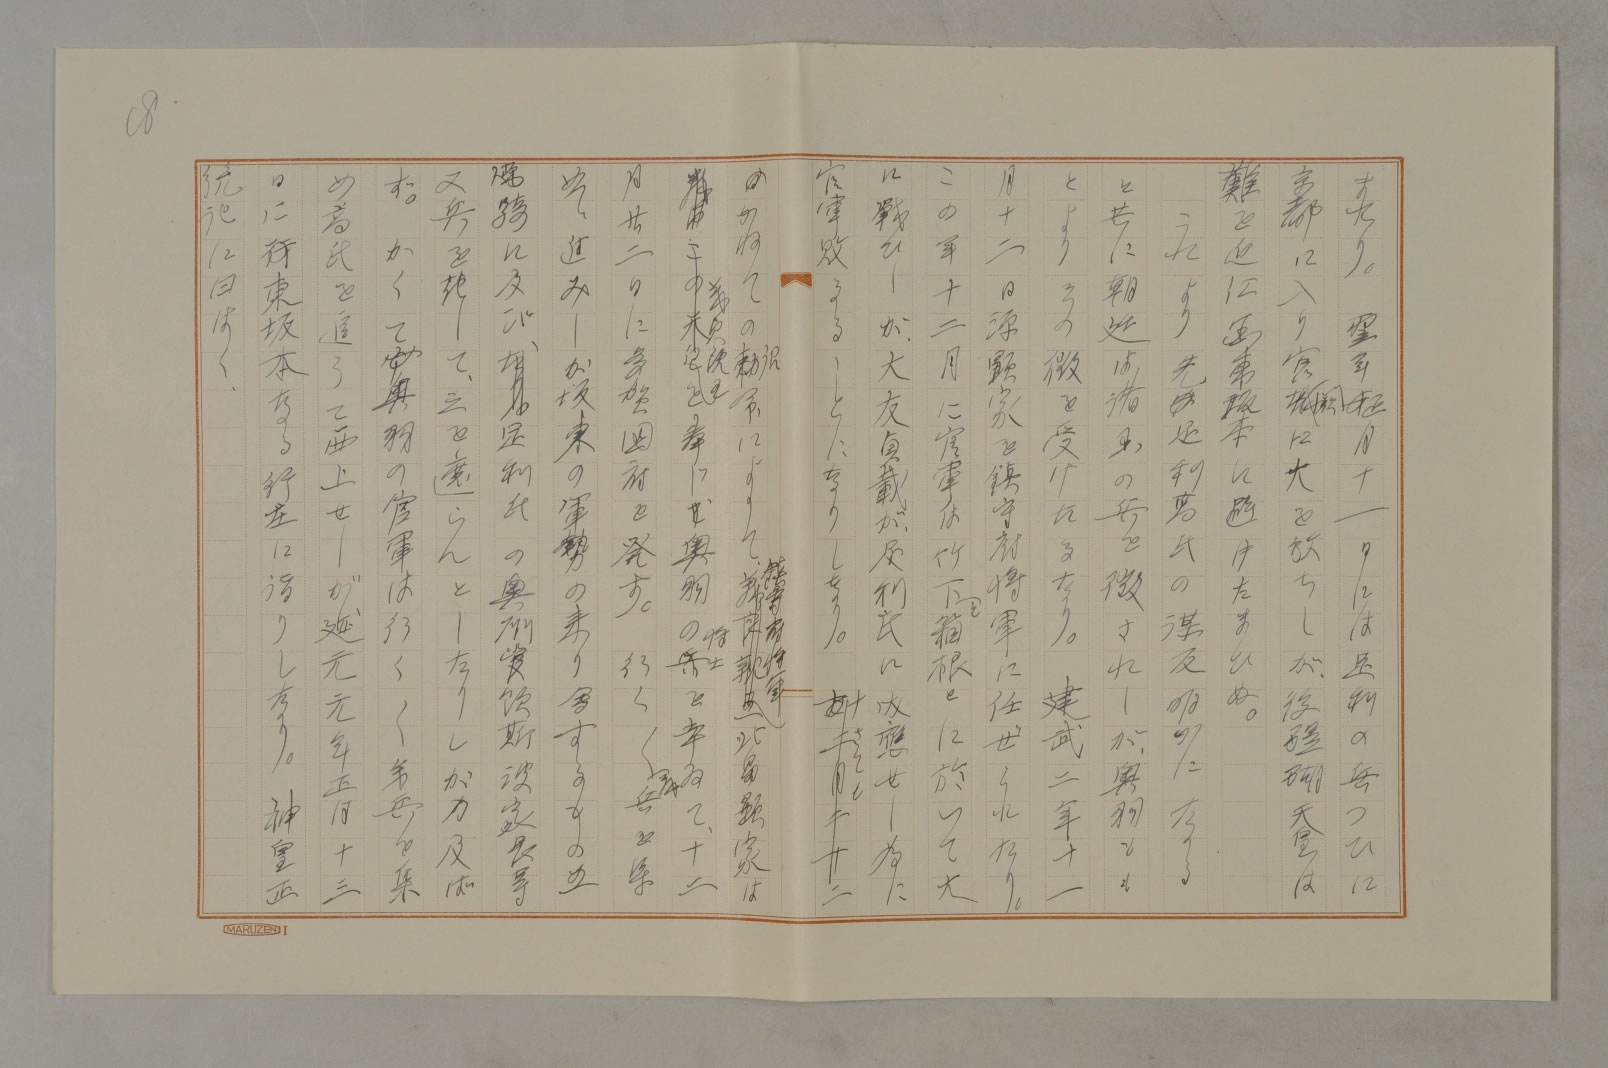 まれり。翌年正月十一日には足利の兵つひに
京都に入り宮闕に火を放ちしが、後醍醐天皇は
難を近江国東坂本に避けたまひぬ。
これより先き足利高氏の謀反明かになる
と共に朝廷は諸国の兵を徴されしが、奥羽もも
とよりその徴を受けたるなり。建武二年十一
月十二日源顕家を鎮守府将軍に任ぜられたり。
この年十二月に官軍は竹下と箱根とに於いて大
に戦ひしが、大友貞載が、足利氏に内応せし為に
官軍敗るゝことになりしなり。さても十二月廿二
のかねての勅命によりて鎮守府将軍北畠顕家は
義良親王を奉じ奥羽の将士を率ゐて、十二
月廿二日に多賀国府を発す。行く行く兵を集
めて進みしが坂東の軍勢の来り属するもの五
万騎に及び、足利氏の奥州管領斯波家長等
又兵を起して、之を遮らんとしたりしが力及ば
ず。かくて奥羽の官軍は行く行く兵を集
め高氏を追うて西上せしが延元元年正月十三
日に東坂本なる行在に詣りしなり。神皇正
統記に曰はく、
MARUZEN I